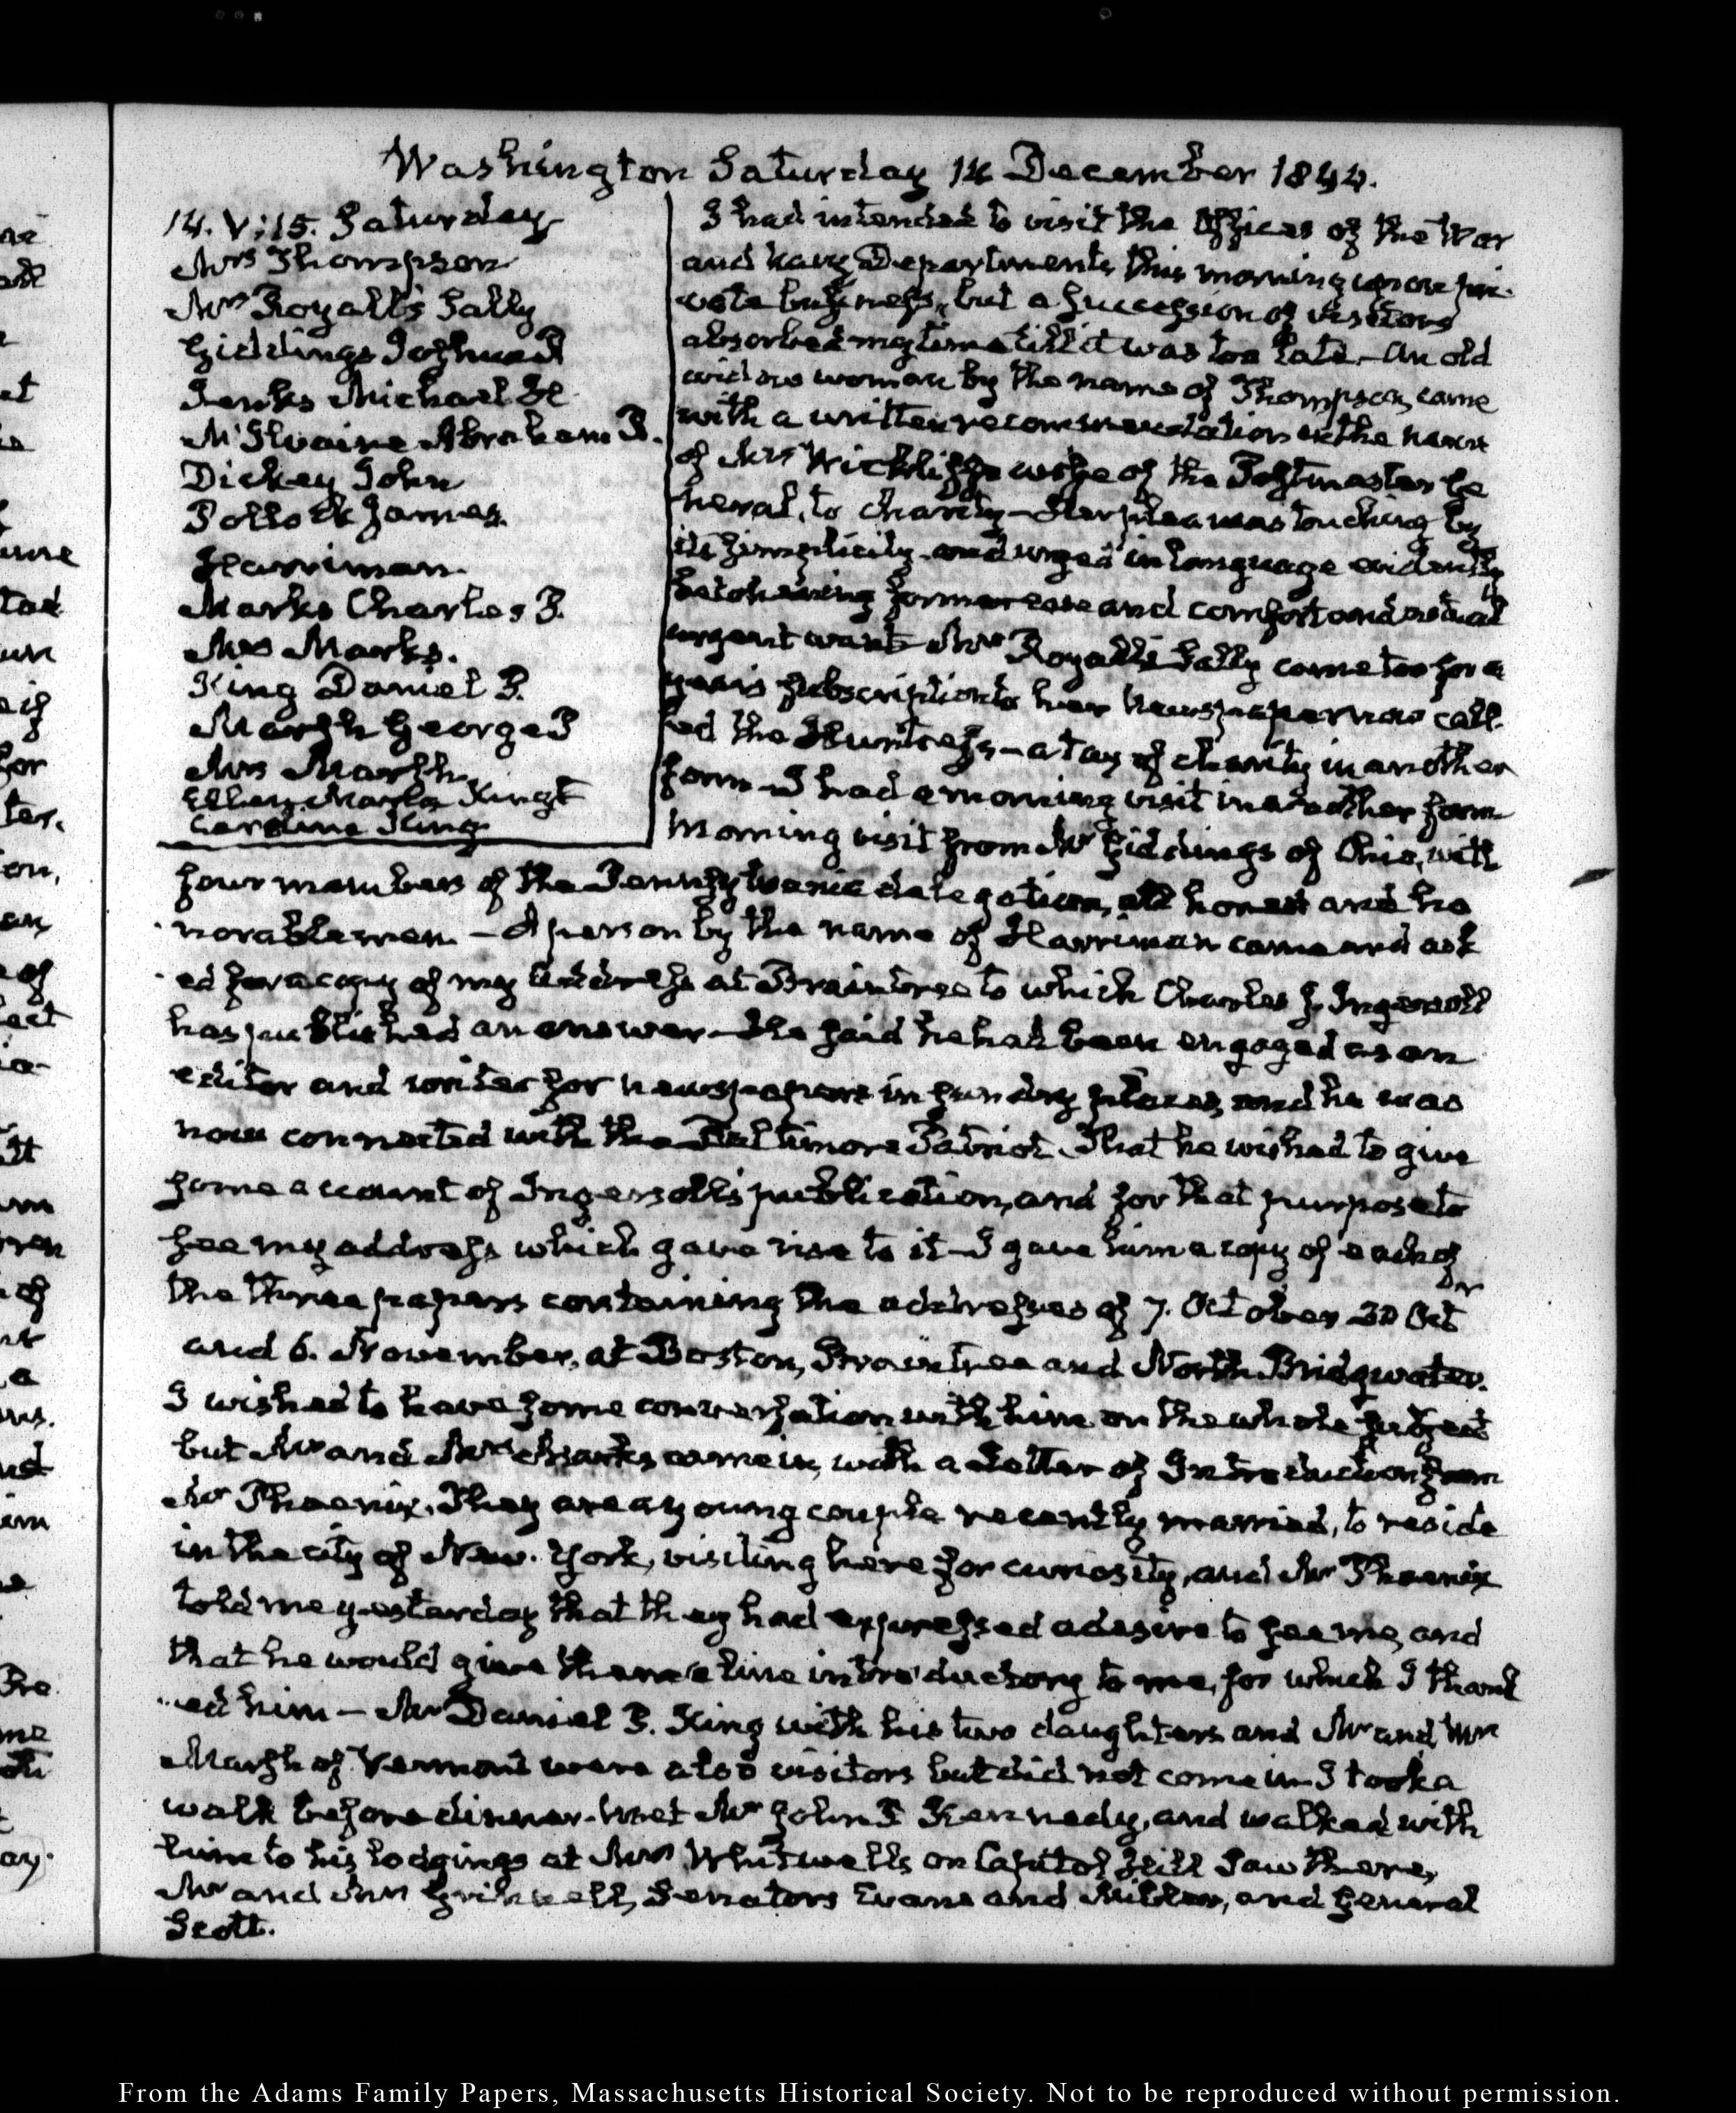 Washington Saturday 14 December 1844.
14. V:15. Saturday
Mrs Thompson
Mrs Royall's Sally
Giddings Joshua R
Jenks Michael H
McIlvaine Abraham R.
Dickey John
Pollock James.
Harriman.
Marks Charles B.
Mrs Marks.
King Daniel P.
Marsh George P
Mrs Marsh
Ellen Maria King
Caroline King
I had intended to visit the Offices of the War
and Navy Departments this morning upon pri-
vate business, but a succession of visitors
absorbed my time till it was too late. An old
widow woman by the name of Thompson, came
with a written recommendation in the name
of Mrs Wickliffe wife of the Postmaster Ge
neral, to charity—Her plea was touching by
its simplicity and urged in language evidently
betokening former ease and comfort and actual
urgent want—Mrs Royall's Sally came too for a
years subscription to her newspaper now call-
ed the Huntress—a tax of charity in another
form—I had a morning visit in another form
morning visit from Mr Giddings of Ohio, with
four members of the Pennsylvania delegation, all honest and ho
norable men.—A person by the name of Harriman came and ask
ed for a copy of my address at Braintree to which Charles J. Ingersoll
has published an answer—He said he had been engaged as an
editor and writer for newspapers in sundry places, and he was
now connected with the Baltimore Patriot. That he wished to give
some account of Ingersoll's publication, and for that purpose to
see my address which gave rise to it—I gave him a copy of each of
the three papers containing the addresses of 7. October 30 Oct
and 6. November, at Boston, Braintree and North Bridgwater.
I wished to have some conversation with him on the whole subject
but Mr and Mrs Marks came in, with a Letter of Introduction from
Mr Phoenix. They are a young couple recently married, to reside
in the city of New-York, visiting here for curiosity, and Mr Phoenix
told me yesterday that they had expressed a desire to see me, and
that he would give them a line introductory to me, for which I thank
ed him—Mr Daniel P. King with his two daughters and Mr and Mrs
Marsh of Vermont were also visitors but did not come in—I took a
walk before dinner. Met Mr John P Kennedy, and walked with
him to his lodgings at Mrs Whitwell's on Capitol Hill Saw there,
Mr and Mrs Grinnell, Senators Evans and Miller, and General
Scott.
From the Adams Family Papers, Massachusetts Historical Society. Not to be reproduced without permission.